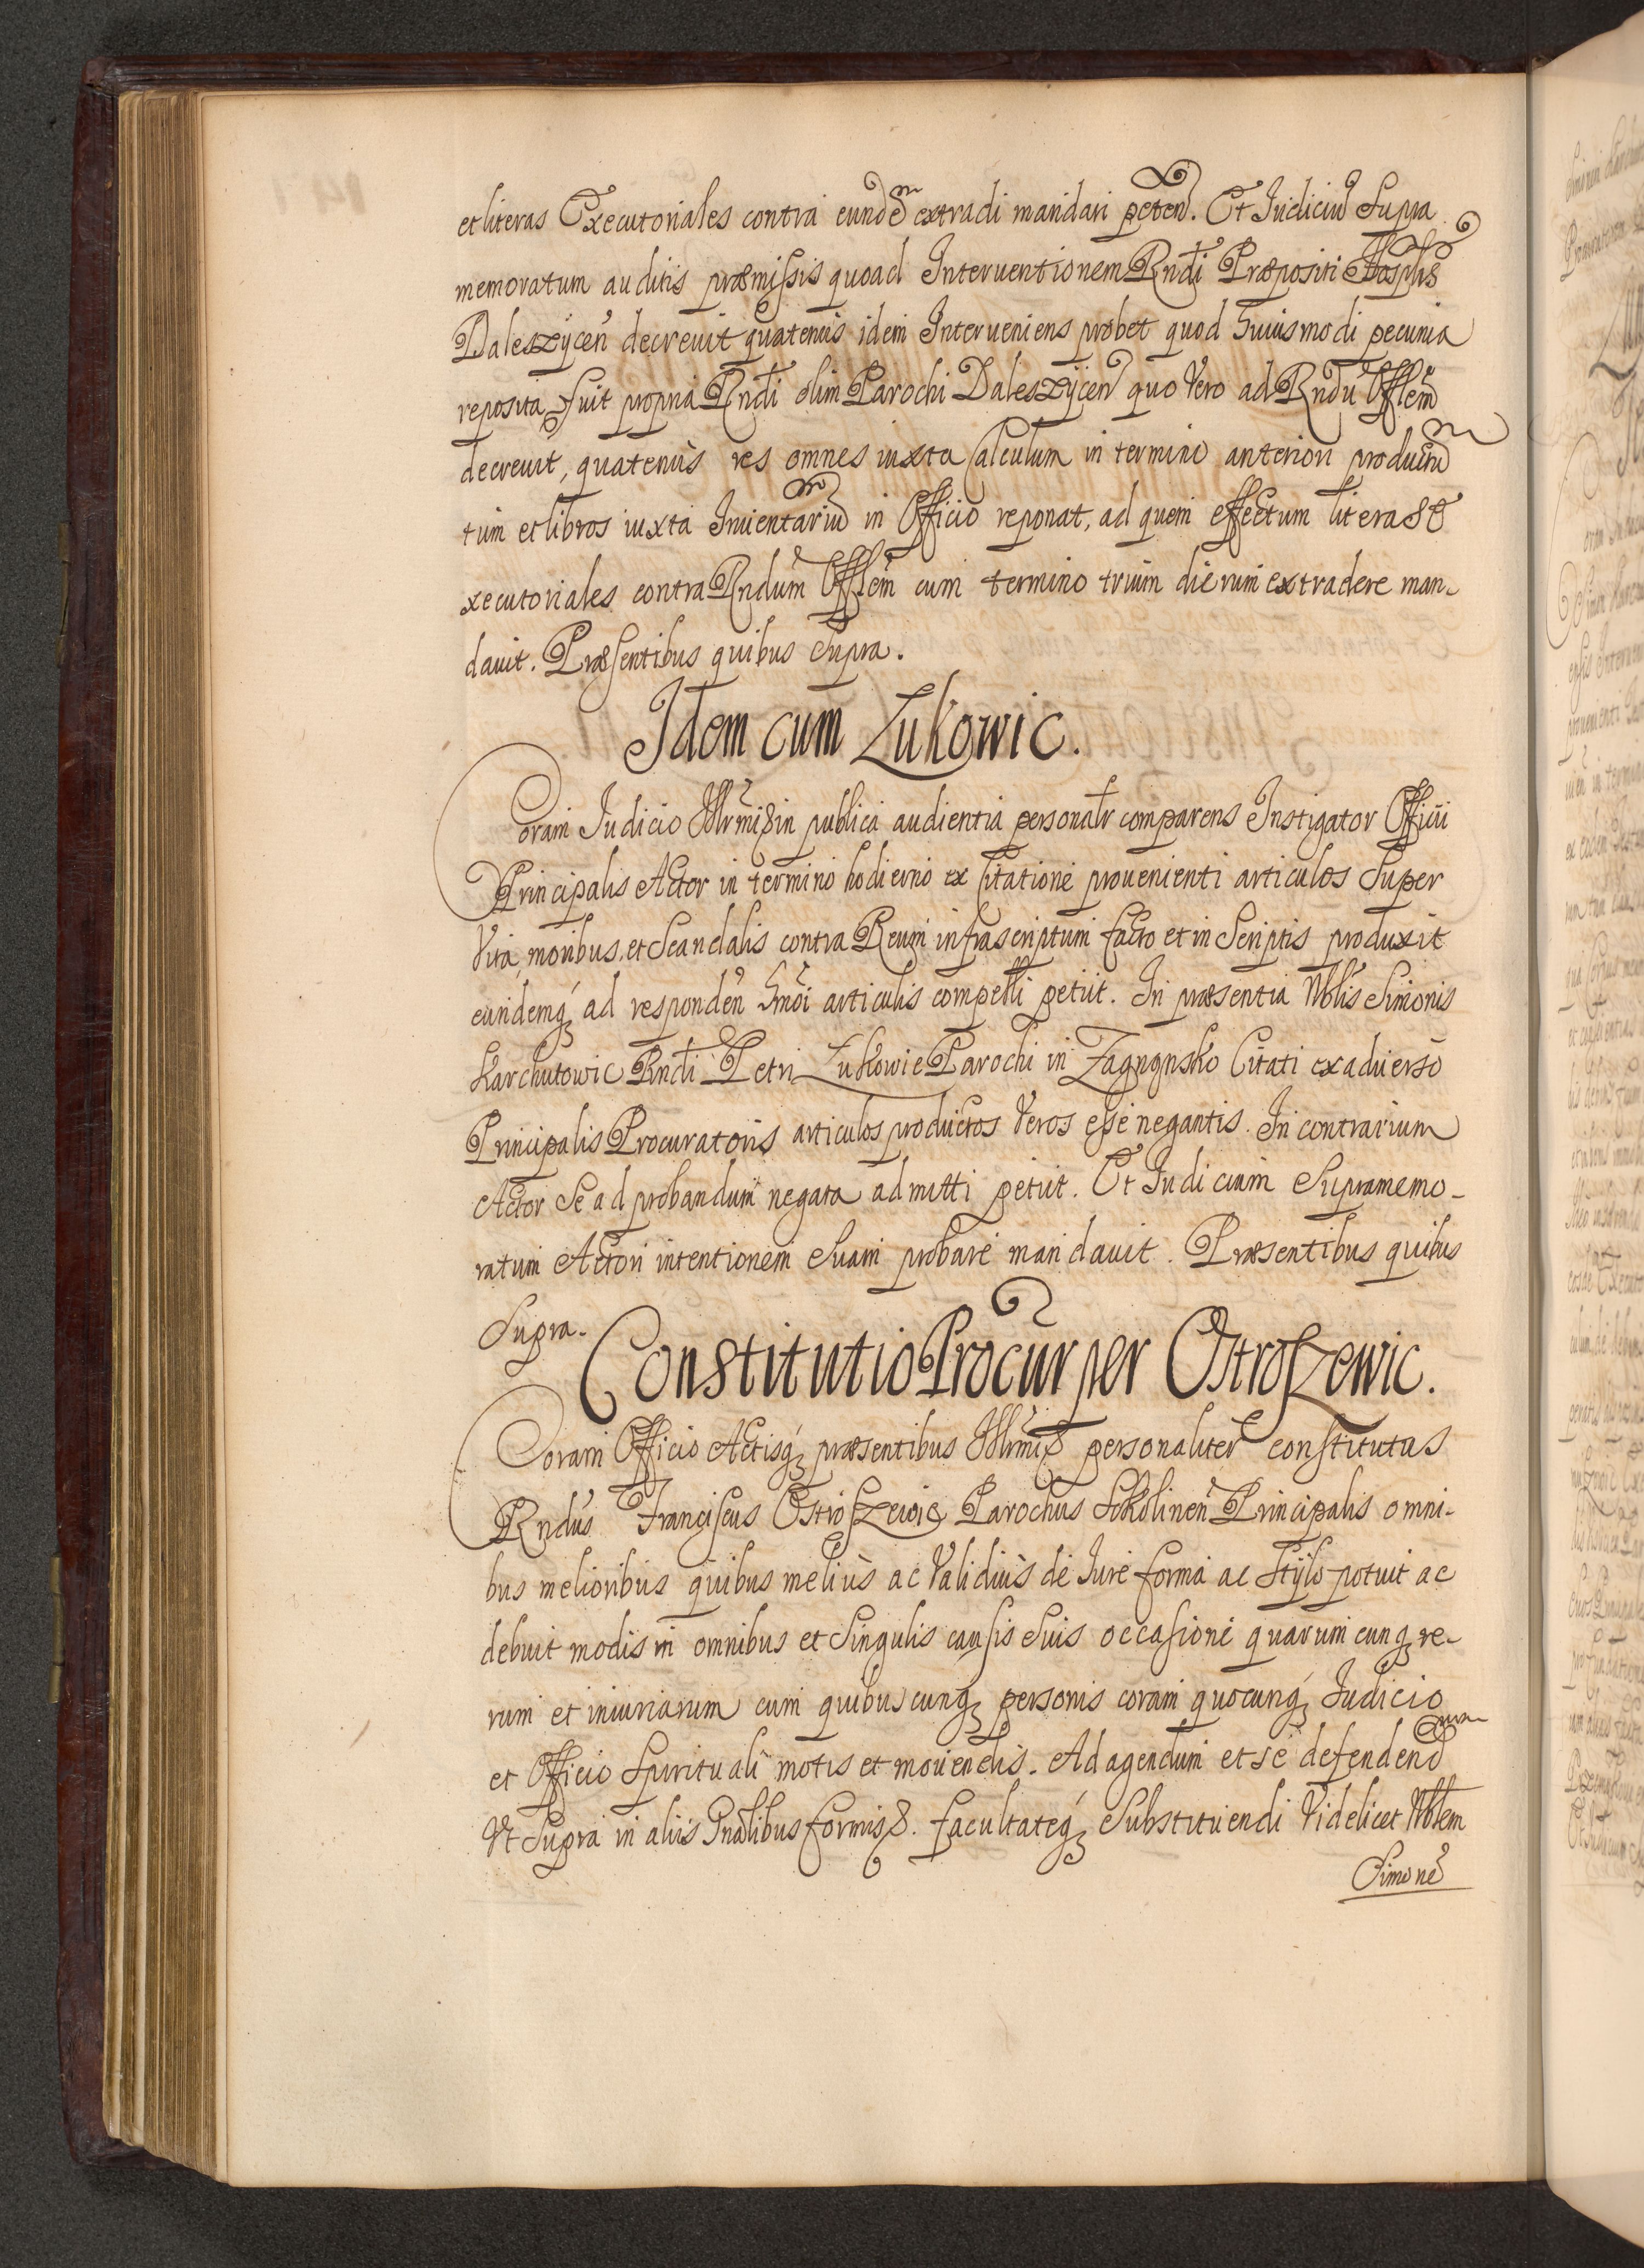 et literas Executoriales contra eundem extradi mandari peten. Et Iudiciū Supra
memoratum auditis præmissis quoad Interuentionem Rndi Præpositi Hosplis
Daleszÿcen̄ decreuit quatenus idem Interueniens probet quod huiusmodi pecunia
reposita fuit propria Rndi olim Parochi Daleszÿcen quo Vero ad Rndū Offlem
decreuit, quatenus res omnes iuxta Calculum in termino anteriori produc
tum et libros iuxta Inuentariū in Officio reponat, ad quem effectum literas E
xecutoriales contra Rndum Offlem cum termino trium dierum extradere man-
dauit. Præsentibus quibus Supra.
Idem cum Zukowic.
Coram Iudicio Illrmi in publica audientia personalr comparens Instigator Officii
Principalis Actor in termino hodierno ex Citatione prouenienti articulos Super
Vita, moribus, et Scandalis contra Reum infrascriptum facto et in Scriptis produxit
eundemq; ad responden̄ hmōi articulis compelli petiit. In præsentia Nblis Simonis
Karchutowic Rndi Petri Zukowic Parochi in Zagnÿnsko Citati ex aduerso
Principalis Procuratoris articulos productos Veros esse negantis. In contrarium
Actor Se ad probandum negata admitti petiit. Et Iudicium Supramemo-
ratum Actori intentionem Suam probare mandauit. Præsentibus quibus
Supra.
Constitutio Procur per Ostroszewic.
Coram Officio Actisq; præsentibus Illrmi personaliter constitutus
Rndus Franciscus Ostroszewic Parochus Principalis omni-
bus melioribus quibus melius ac Validius de Iure forma ac Stÿlo potuit ac
debuit modis in omnibus et Singulis causis Suis occasione quarumcunq; re-
rum et iniuriarum cum quibuscunq; personis coram quocunq; Iudicio
et Officio Spirituali motis et mouendis. Ad agendum et se defendend
Vt Supra in aliis Gnālibus formis. facultateq; Substituendi Videlicet Nblem
Simonē